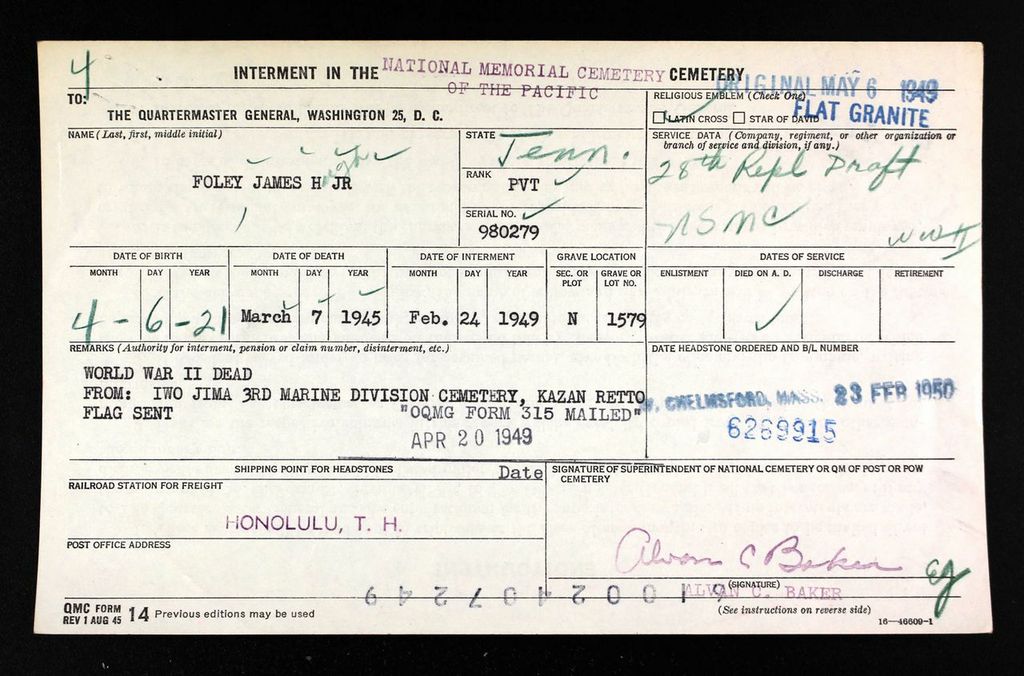 4
INTERMENT IN THE NATIONAL MEMORIAL CEMETERY OF THE PACIFIC CEMETERY
ORIGINAL MAY 6 1949
FLAT GRANITE
TO:
THE QUARTERMASTER GENERAL, WASHINGTON 25, D. C.
RELIGIOUS EMBLEM (Check One)
LATIN CROSS STAR OF DAVID
NAME (Last, first, middle initial)
FOLEY JAMES H JR
STATE
Tenn.
RANK
PVT
SERIAL NO.
980279
SERVICE DATA (Company, regiment, or other organization or branch of service and division, if any.)
28th Repl Draft
USMC
WW II
DATE OF BIRTH
MONTH DAY YEAR
4-6-21
DATE OF DEATH
MONTH DAY YEAR
March 7 1945
DATE OF INTERMENT
MONTH DAY YEAR
Feb. 24 1949
GRAVE LOCATION
SEC. OR PLOT GRAVE OR LOT NO.
N 1579
DATES OF SERVICE
ENLISTMENT DIED ON A. D. DISCHARGE RETIREMENT
REMARKS (Authority for interment, pension or claim number, disinterment, etc.)
WORLD WAR II DEAD
FROM: IWO JIMA 3RD MARINE DIVISION CEMETERY, KAZAN RETTO
FLAG SENT "OQMG FORM 315 MAILED"
APR 20 1949
Date
DATE HEADSTONE ORDERED AND B/L NUMBER
W. CHELMSFORD, MASS. 23 FEB 1950
6269915
SHIPPING POINT FOR HEADSTONES
RAILROAD STATION FOR FREIGHT
HONOLULU, T. H.
POST OFFICE ADDRESS
SIGNATURE OF SUPERINTENDENT OF NATIONAL CEMETERY OR QM OF POST OR POW CEMETERY
Alvan C Baker
(SIGNATURE)
ALVAN C. BAKER
(See instructions on reverse side)
QMC FORM
REV 1 AUG 45 14 Previous editions may be used
16—46609-1